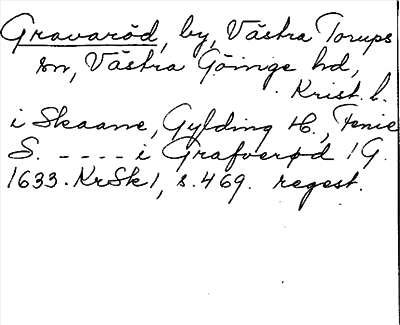 Gravaröd, by, Västra Torups
sn, Västra Göinge hd,
Krist. l.
i Skaane, Gylding H., Fenie
S. - - - - i Grafverød 1 G.
1633. KrSk 1, s. 469. regest.